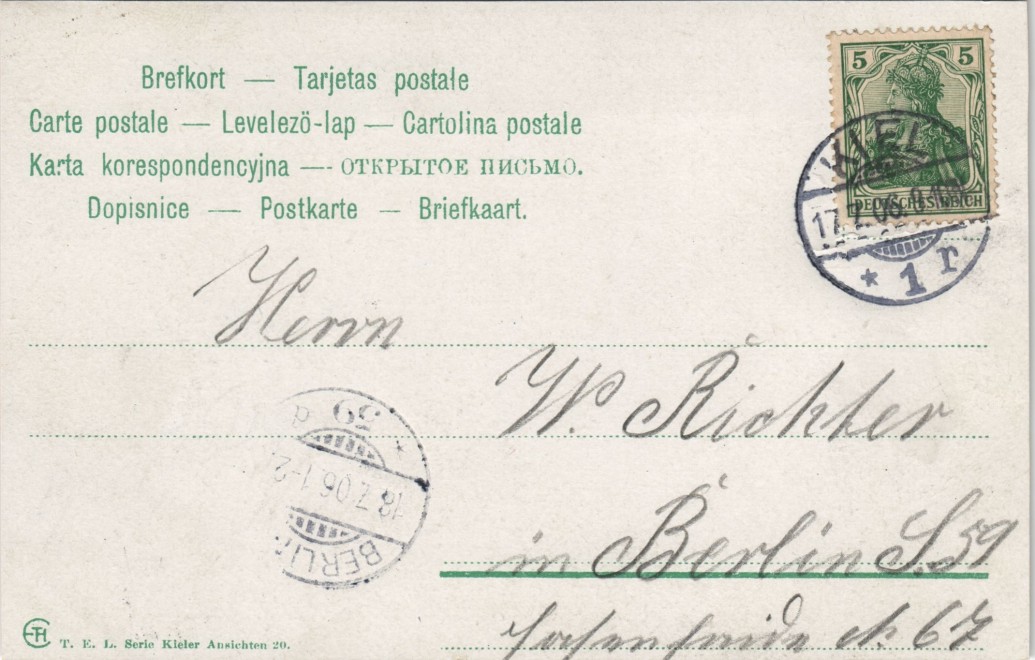 Brefkort — Tarjetas postale
Carte postale — Levelezö-lap — Cartolina postale
Karta korespondencyjna — ОТКРЫТОЕ ПИСЬМО.
Dopisnice — Postkarte — Briefkaart.
5 5
DEUTSCHES REICH
KIEL
17.7.06.
* 1 r
Herrn
W. Richter
in Berlin S. 59
Hasenheide № 67
BERLIN
18.7.06.1-2
* 59
T. E. L. Serie Kieler Ansichten 20.